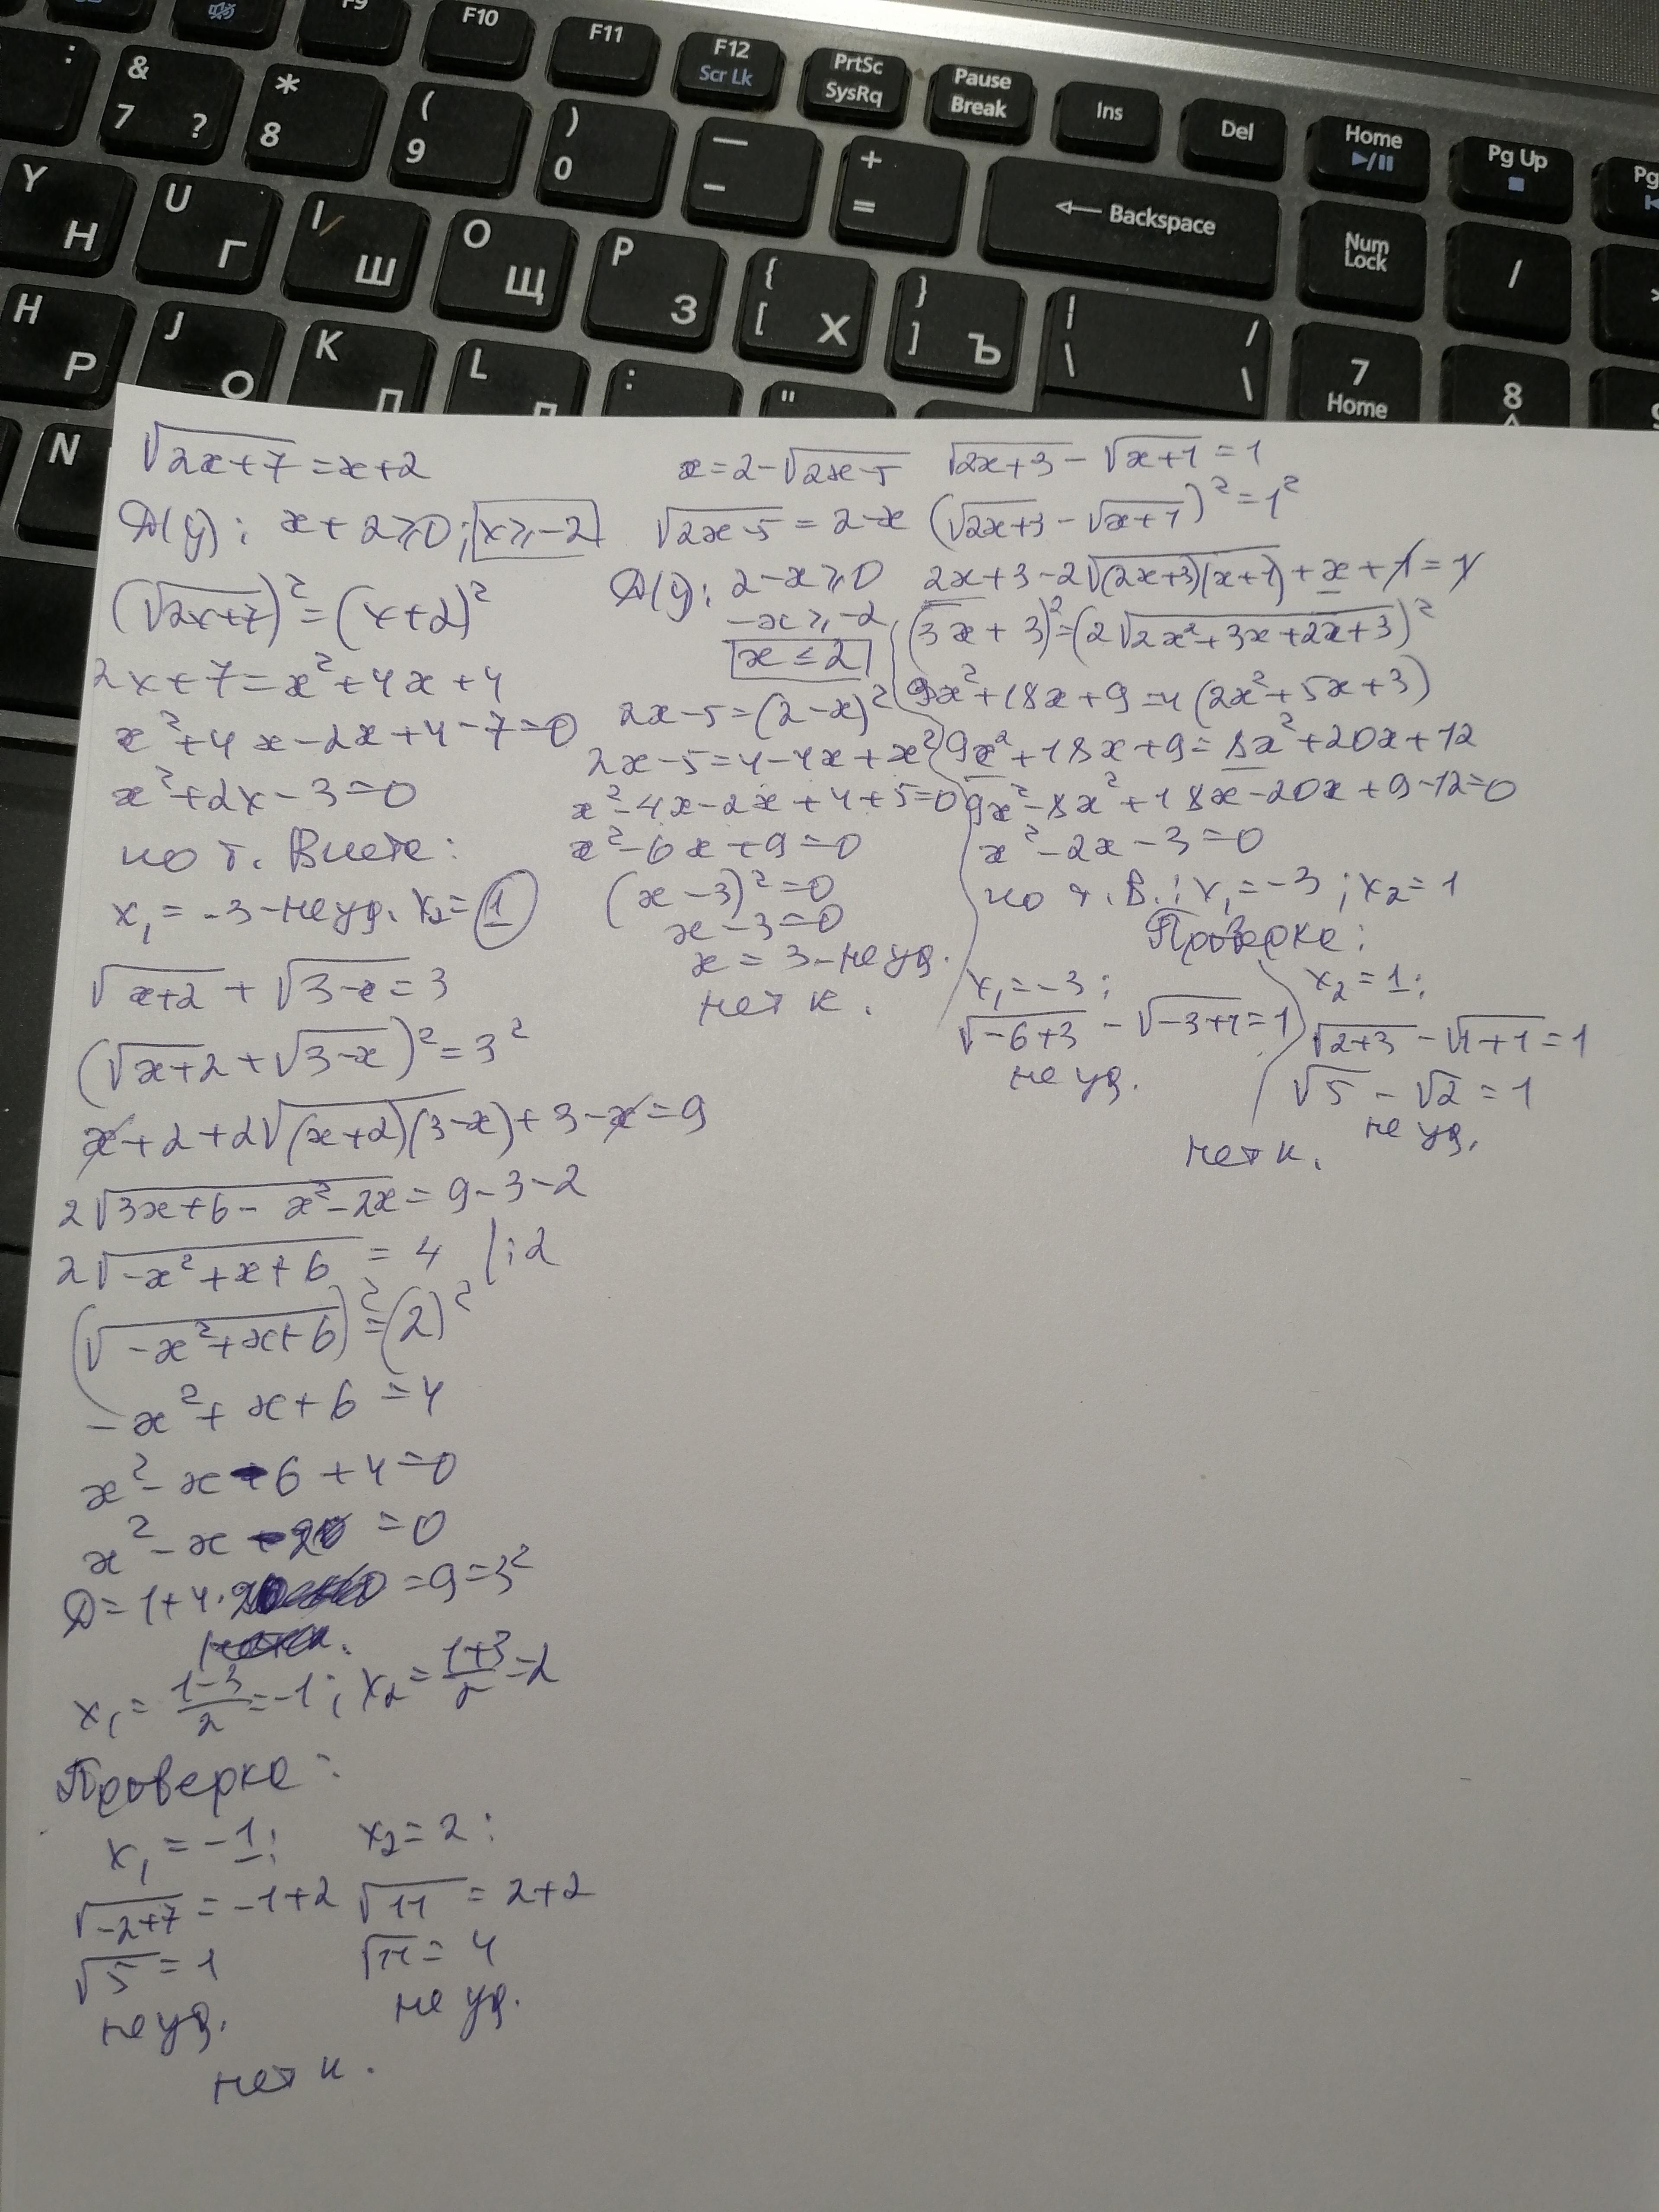 F9
F10
F11
F12
Scr Lk
PrtSc
SysRq
Pause
Break
Ins
Del
Home
Pg Up
Pg
&
7 ?
*
8
(
9
)
0
—
–
+
=
Backspace
Num
Lock
/
Y Н
U Г
I Ш
O Щ
P З
{
[ Х
}
] Ъ
| /
\ \
7
Home
8
H Р
J О
K Л
L
:
"
N
√2x+7 = x+2
D(y): x+2≥0; x≥-2
(√2x+7)² = (x+2)²
2x+7=x²+4x+4
x²+4x-2x+4-7=0
x²+2x-3=0
по т. Виета:
x₁ = -3 - не уд. x₂ = 1
√x+2 + √3-x = 3
(√x+2 + √3-x)² = 3²
x+2+2√(x+2)(3-x)+3-x=9
2√3x+6-x²-2x = 9-3-2
2√-x²+x+6 = 4 |:2
(√-x²+x+6)² = (2)²
-x²+x+6=4
x²-x-6+4=0
x²-x-2=0
D=1+4·2=9=3²
x₁ = (1-3)/2 = -1; x₂ = (1+3)/2 = 2
Проверка:
x₁ = -1: x₂ = 2:
√-2+7 = -1+2 √11 = 2+2
√5 = 1 √11 = 4
не уд. не уд.
нет к.
x=2-√2x-5
√2x-5 = 2-x
D(y): 2-x≥0
-x≥-2
x≤2
2x-5=(2-x)²
2x-5=4-4x+x²
x²-4x-2x+4+5=0
x²-6x+9=0
(x-3)²=0
x-3=0
x=3-не уд.
нет к.
√2x+3 - √x+1 = 1
(√2x+3 - √x+1)² = 1²
2x+3-2√(2x+3)(x+1)+x+1=1
(3x+3)²=(2√2x²+3x+2x+3)²
9x²+18x+9=4(2x²+5x+3)
9x²+18x+9=8x²+20x+12
9x²-8x²+18x-20x+9-12=0
x²-2x-3=0
по т. В.: x₁=-3; x₂=1
Проверка:
x₁=-3: x₂=1:
√-6+3 - √-3+1 = 1 √2+3 - √1+1 = 1
не уд. √5 - √2 = 1
не уд.
нет к.